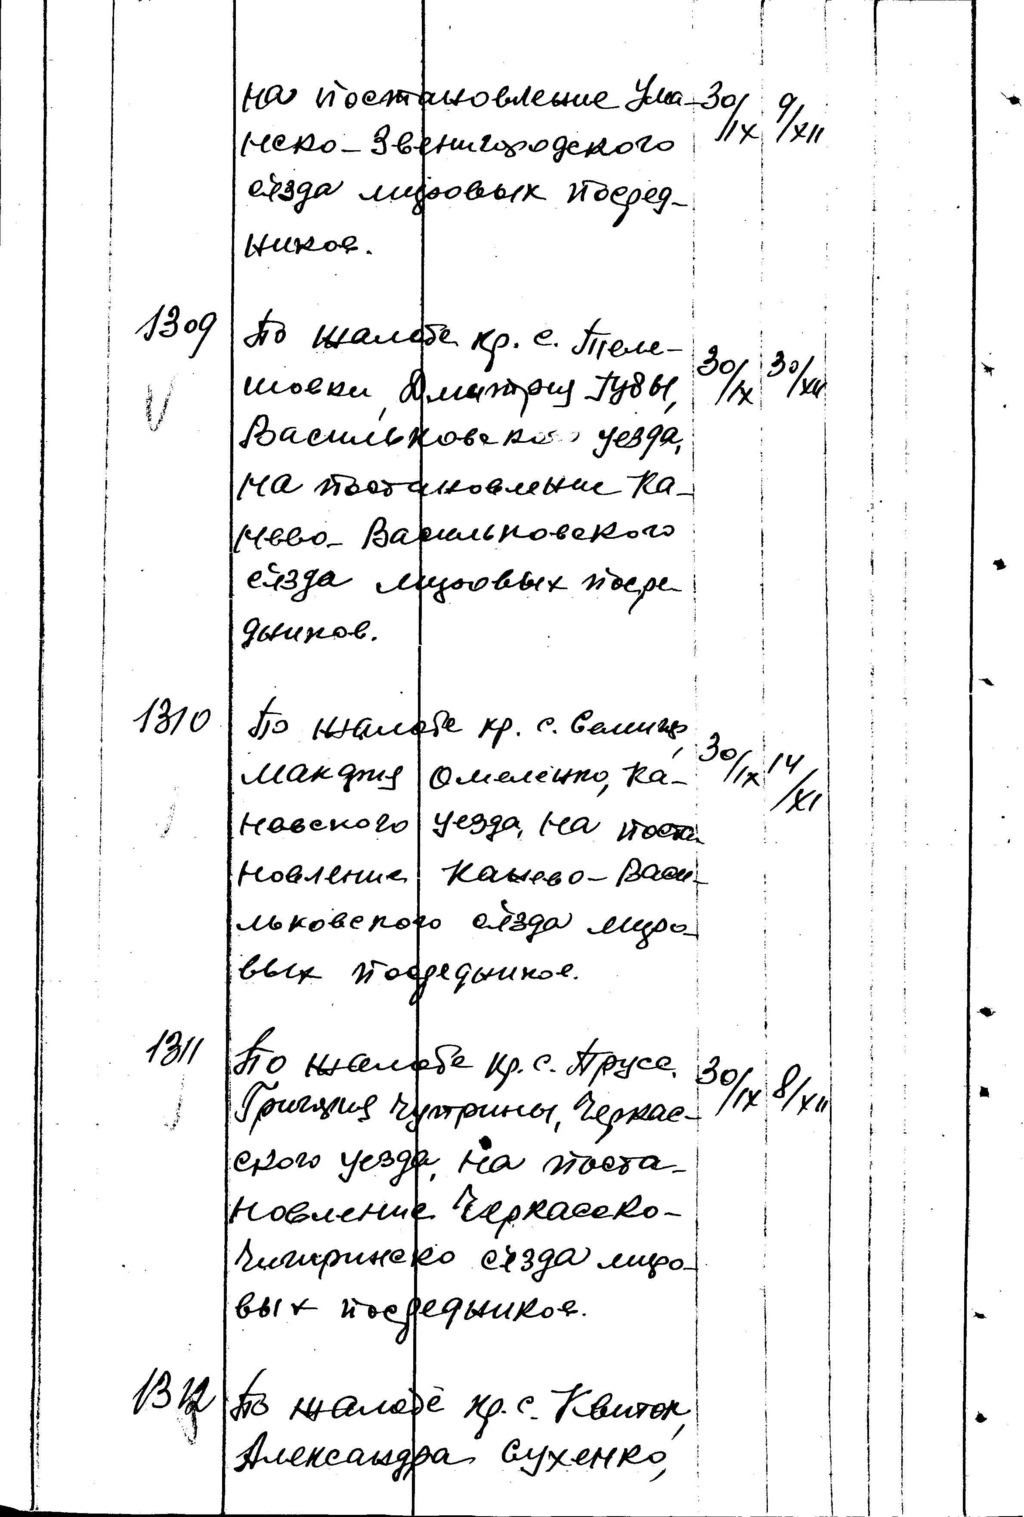 на постановление Ума- 30/IX 9/XII
нско-Звенигородского
с'езда мировых посред-
ников.
1309 По жалобе кр. с. Теле-
шовки, Дмитрия Губы, 30/IX 30/XII
Васильковского уезда,
на постановление Ка-
нево-Васильковского
с'езда мировых посре-
дников.
1310 По жалобе кр. с.
Макария Омеленко, Ка- 30/IX 14/XI
невского уезда, на поста
новление Канево-Васи-
льковского с'езда миро-
вых посредников.
1311 По жалобе кр. с. Пруса, 30/IX 8/XII
Григория Чуприны, Черкас-
ского уезда, на поста-
новление Черкасско-
Чигиринско с'езда миро-
вых посредников.
1312 По жалобе кр. с. Квиток,
Александра Сухенко,